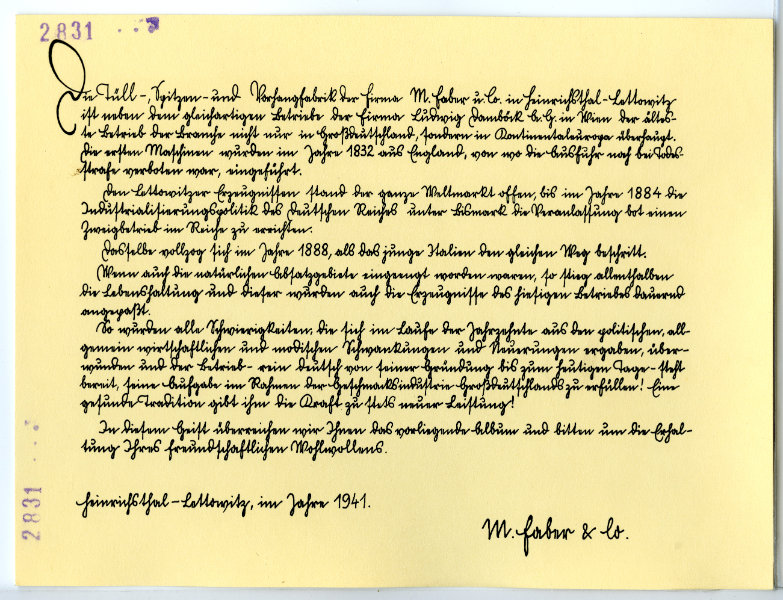 2831
Die Tüll-, Spitzen- und Vorhangfabrik der Firma M. Faber u. Co. in Heinrichsthal-Lettowitz
ist neben dem gleichartigen Betriebe der Firma Ludwig Damböck A.G. in Wien der ältes-
te Betrieb der Branche nicht nur in Großdeutschland, sondern in Kontinentaleuropa überhaupt.
Die ersten Maschinen wurden im Jahre 1832 aus England, von wo die Ausfuhr noch bei Todes-
strafe verboten war, eingeführt.
Den Lettowitzer Erzeugnissen stand der ganze Weltmarkt offen, bis im Jahre 1884 die
Industrialisierungspolitik des Deutschen Reiches unter Bismark die Veranlassung bot einen
Zweigbetrieb im Reiche zu errichten.
Dasselbe vollzog sich im Jahre 1888, als das junge Italien den gleichen Weg beschritt.
Wenn auch die natürlichen Absatzgebiete eingeengt worden waren, so stieg allenthalben
die Lebenshaltung und dieser wurden auch die Erzeugnisse des hiesigen Betriebes dauernd
angepaßt.
So wurden alle Schwierigkeiten, die sich im Laufe der Jahrzehnte aus den politischen, all-
gemein wirtschaftlichen und modischen Schwankungen und Neuerungen ergaben, über-
wunden und der Betrieb - rein deutsch von seiner Gründung bis zum heutigen Tage - steht
bereit, seine Aufgabe im Rahmen der Geschmacksindustrie Großdeutschlands zu erfüllen! Eine
gesunde Tradition gibt ihm die Kraft zu stets neuer Leistung!
In diesem Geist überreichen wir Ihnen das vorliegende Album und bitten um die Erhal-
tung Ihres freundschaftlichen Wohlwollens.
Heinrichsthal-Lettowitz, im Jahre 1941.
M. Faber & Co.
2831